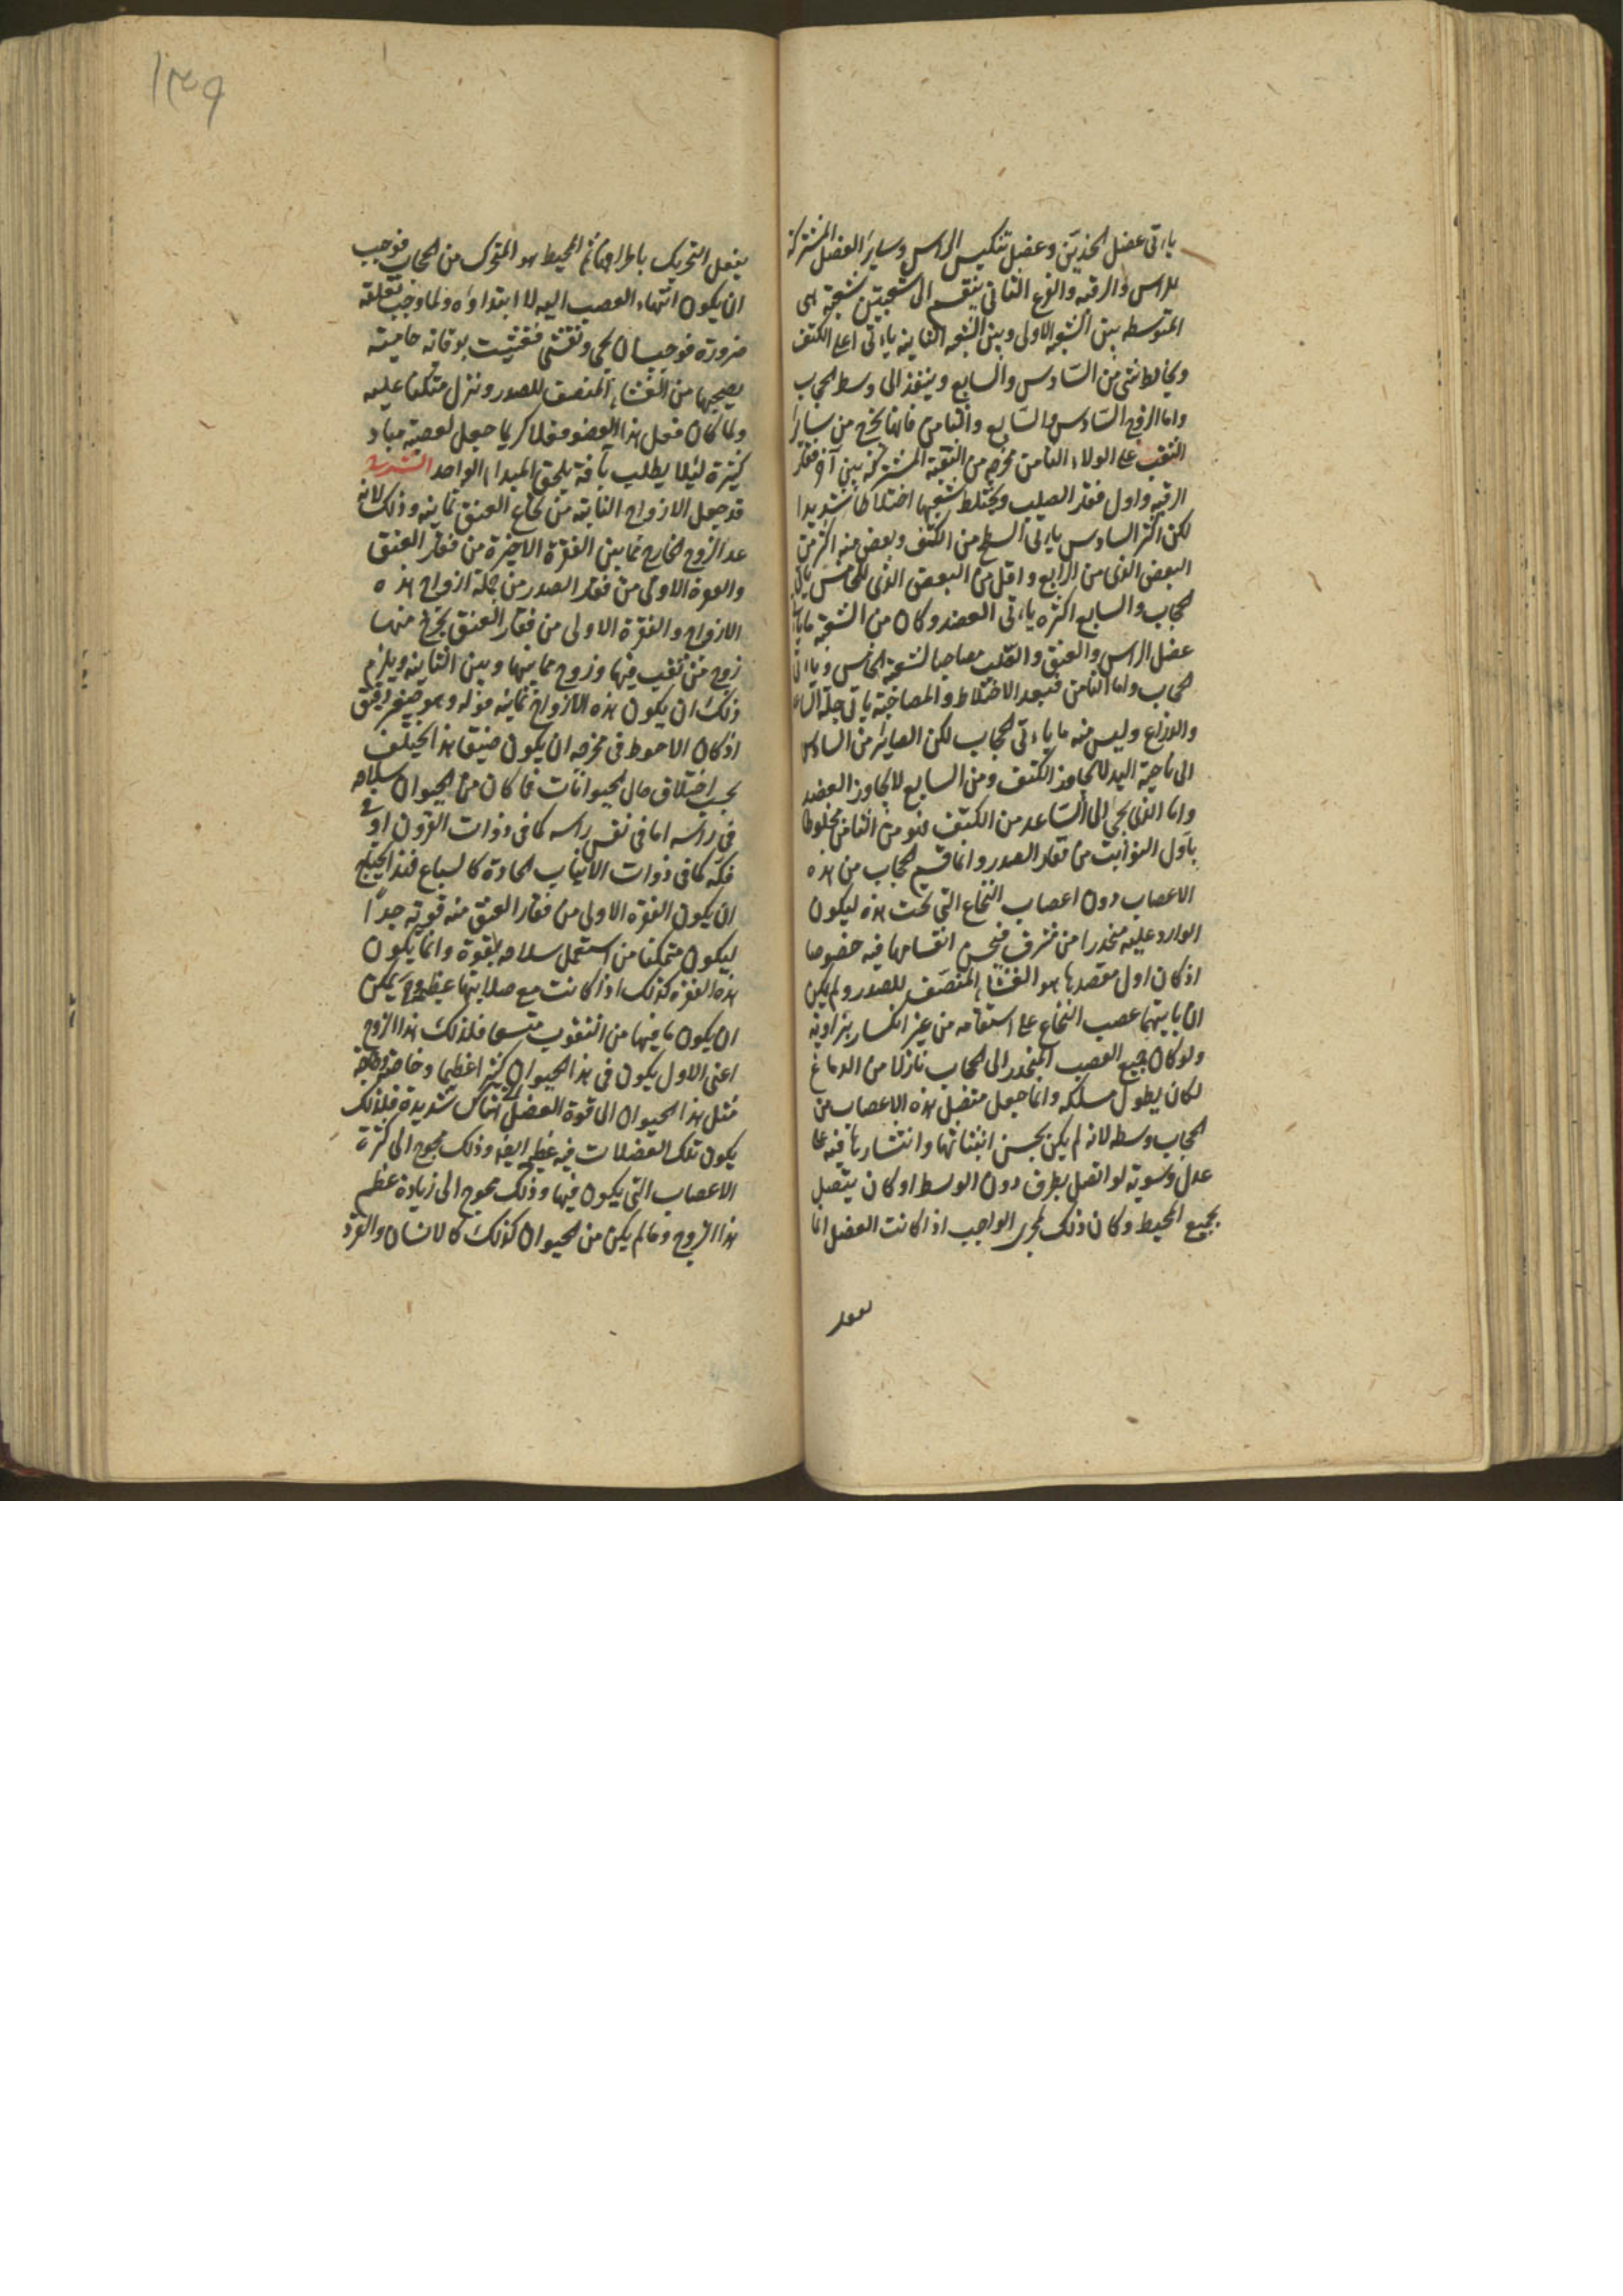 ياتى عضل الخدين وعضل تنكيس الراس وساير العضل المشتركة
للراس والرقبه والفرع الثانى ينقسم الى شعبتين شعبة هى
المتوسط بين الشعبه الاولى وبين الشعبه الثانيه ياتى اعلى الكتف
ويخالط شئ من السادس والسابع وينفذ الى وسط الحجاب
واما الزوج السادس والسابع والثامن فانها تخرج من ساير
الثقب على الولاء الثامن مخرجه من الثقبة المشتركة بين آخر فقار
الرقبه واول فقار الصلب ويختلط شعبها اختلاطا شديدا
لكن اكثر السادس ياتى السطح من الكتف وبعض منه اكثر من
البعض الذى من الرابع واقل من البعض الذى للخامس ياتى
الحجاب والسابع اكثره ياتى العضد وكان من الشعبة ماياتى
عضل الراس والعنق والقلب مصاحبا لشعبة الخامس وياتى
الحجاب واما الثامن فبعد الاختلاط والمصاحبة ياتى جلد الساعد
والذراع وليس منه ما ياتى الحجاب لكن الصاير من السادس
الى ناحية اليد لا يجاوز الكتف ومن السابع لا يجاوز العضد
واما الذى يجئ الى الساعد من الكتف فهو من الثامن مخلوطا
باول النوابت من فقار الصدر وانما قسم الحجاب من هذه
الاعصاب دون اعصاب النخاع التى تحت هذه ليكون
الوارد عليه منحدرا من مشرف فيحسن انقسامها فيه خصوصا
اذ كان اول مقصدها هو الغشاء المنصف للصدر ولم يكن
ان ياتيهما عصب النخاع على استقامه من غير انكسار بزاوية
ولو كان جميع العصب المنحدر الى الحجاب نازلا من الدماغ
لكان يطول مسلكه وانما جعل متصل هذه الاعصاب من
الحجاب وسطه لانه لم يكن يحسن انبثاثها وانتشارها فيه على
عدل وسوية لو اتصل بطرف دون الوسط او كان يتصل
بجميع المحيط وكان ذلك لمجرى الواجب اذا كانت العضل انما
١٣٩
يفعل التحريك باطرافها ثم المحيط هو المتحرك من الحجاب فوجب
ان يكون انتهاء العصب اليه لا ابتداوه ولما وجب تعلقه
ضرورة فوجب ان يحمى وتغشى فغشيت بوقاية حامية
يصحبها من الغشاء المنصف للصدر ونزل متكئا عليه
ولما كان فعل هذا العضو فعلا كريما جعل لعصبه مباد
كثيرة ليلا يبطل بآفة يلحق المبدا الواحد الشرح
قد جعل الازواج النابتة من نخاع العنق ثمانيه وذلك لانه
عد الزوج الخارج مما بين الفقرة الاخيرة من فقار العنق
والفقرة الاولى من فقار الصدر من جملة ازواج هذه
الازواج والفقرة الاولى من فقار العنق يخرج منها
زوج من ثقب فيها وزوج مما بينها وبين الثانية ويلزم
ذلك ان يكون هذه الازواج ثمانية قوله وهو صغير دقيق
اذ كان الاحوط فى مخرجه ان يكون ضيق هذا يختلف
بحسب اختلاف حال الحيوانات فما كان من الحيوان سلاحه
فى راسه اما فى نفس راسه كما فى ذوات القرون او فى
فكه كما فى ذوات الانياب الحادة كالسباع فهذا يحتاج
ان يكون الفقره الاولى من فقار العنق منه قوية جدا
ليكون متمكنا من استعمال سلاحه بقوة وانما يكون
هذه الفقره كذلك اذا كانت مع صلابتها عظيمة وح يمكن
ان يكون ما فيها من الثقوب متسعا فلذلك هذا الزوج
اعنى الاول يكون فى هذا الحيوان كثيرا عظيما وخاصة وحاجة
مثل هذا الحيوان الى قوة العضل التى هناك شديدة فلذلك
يكون تلك العضلات فيه عظيمة ايضا وذلك محوج الى كثرة
الاعصاب التى يكون فيها وذلك محوج الى زيادة عظم
هذا الزوج وما لم يكن من الحيوان كذلك كالانسان والقرد